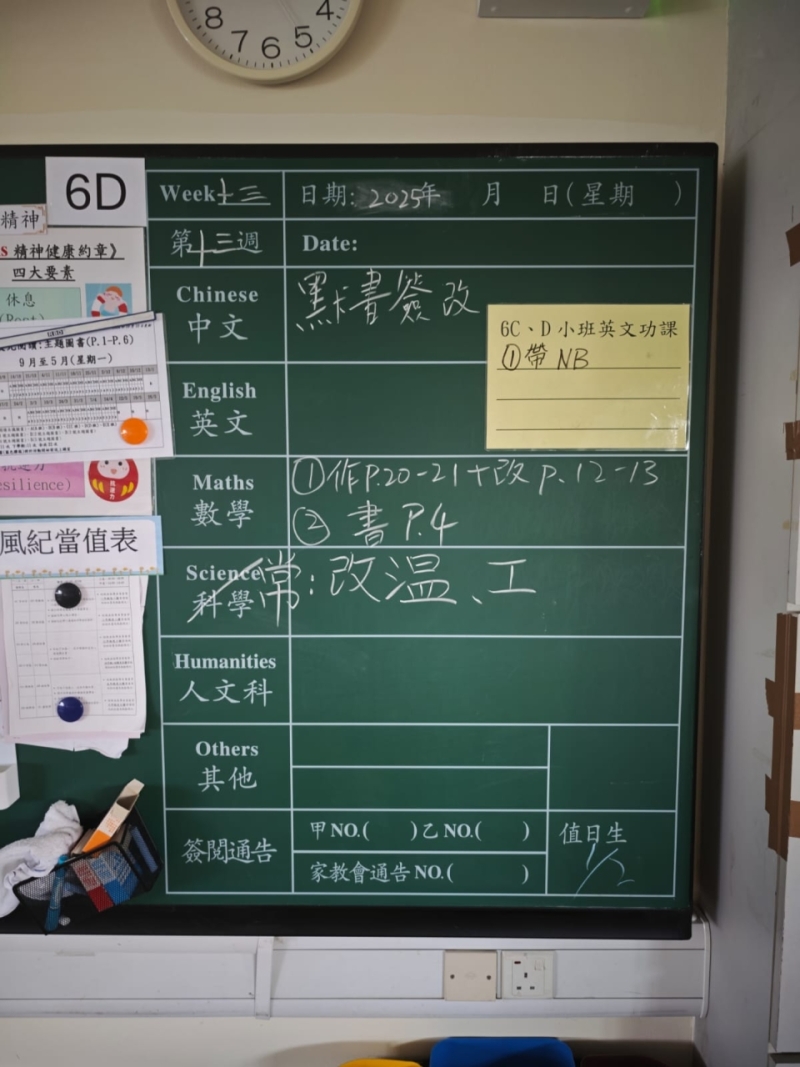 8
7
6
5
4
6D
Week 十三
日期: 2025年 月 日(星期 )
精神
第十三週
Date:
S 精神健康約章》
四大要素
休息
Chinese
中文
默書簽改
6C、D小班英文功課
①帶 NB
主題圖書(P.1-P.6)
9月至5月(星期一)
English
英文
esilience)
Maths
數學
①作P.20-21+改 P.12-13
②書 P.4
風紀當值表
Science
科學
常:改溫、工
Humanities
人文科
Others
其他
簽閱通告
甲 NO.( )乙 NO.( )
家教會通告 NO.( )
值日生
1/2